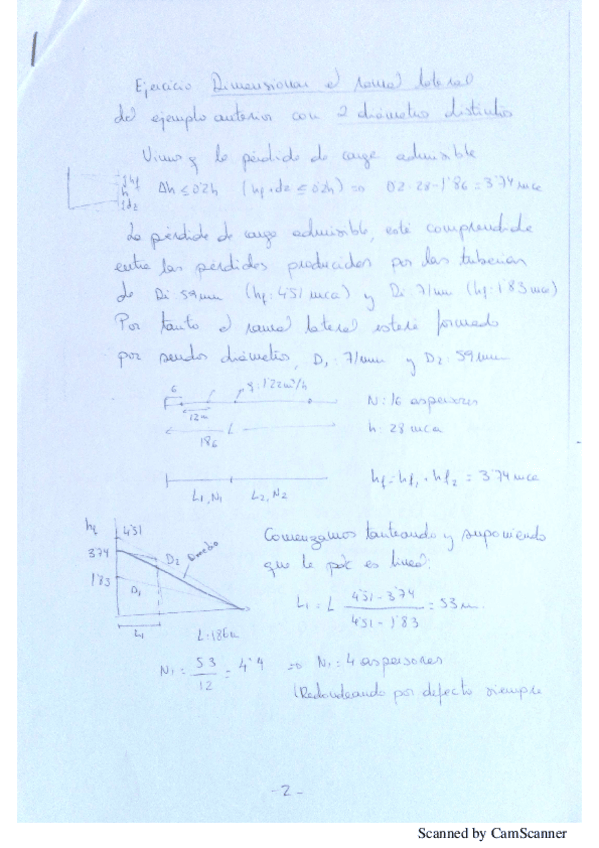 1
Ejercicio Dimensionar el ramal lateral
del ejemplo anterior con 2 diámetros distintos
Vimos q la pérdida de carga admisible
hf
h
dz
Δh ≤ 0'2h (hf + dz ≤ 0'2h) => 0'2·28 - 1'86 = 3'74 mca
La pérdida de carga admisible, esté comprendida
entre las pérdidas producidas por las tuberías
de Di 59mm (hf: 4'51 mca) y Di 71mm (hf: 1'83 mca)
Por tanto el ramal lateral estará formado
por sendos diámetros, D1: 71mm y D2: 59mm
6
q: 1'22 m³/h
12m
L
186
N: 16 aspersores
h: 28 mca
L1, N1 L2, N2
hf = hf1 + hf2 = 3'74 mca
hf
4'51
3'74
1'83
D2
D1
L1
L: 186m
Comenzamos tanteando y suponiendo
que la pdc es lineal:
L1 = L (4'51 - 3'74) / (4'51 - 1'83) = 53m.
N1 = 53/12 = 4'4 => N1 = 4 aspersores
(Redondeando por defecto siempre
- 2 -
Scanned by CamScanner